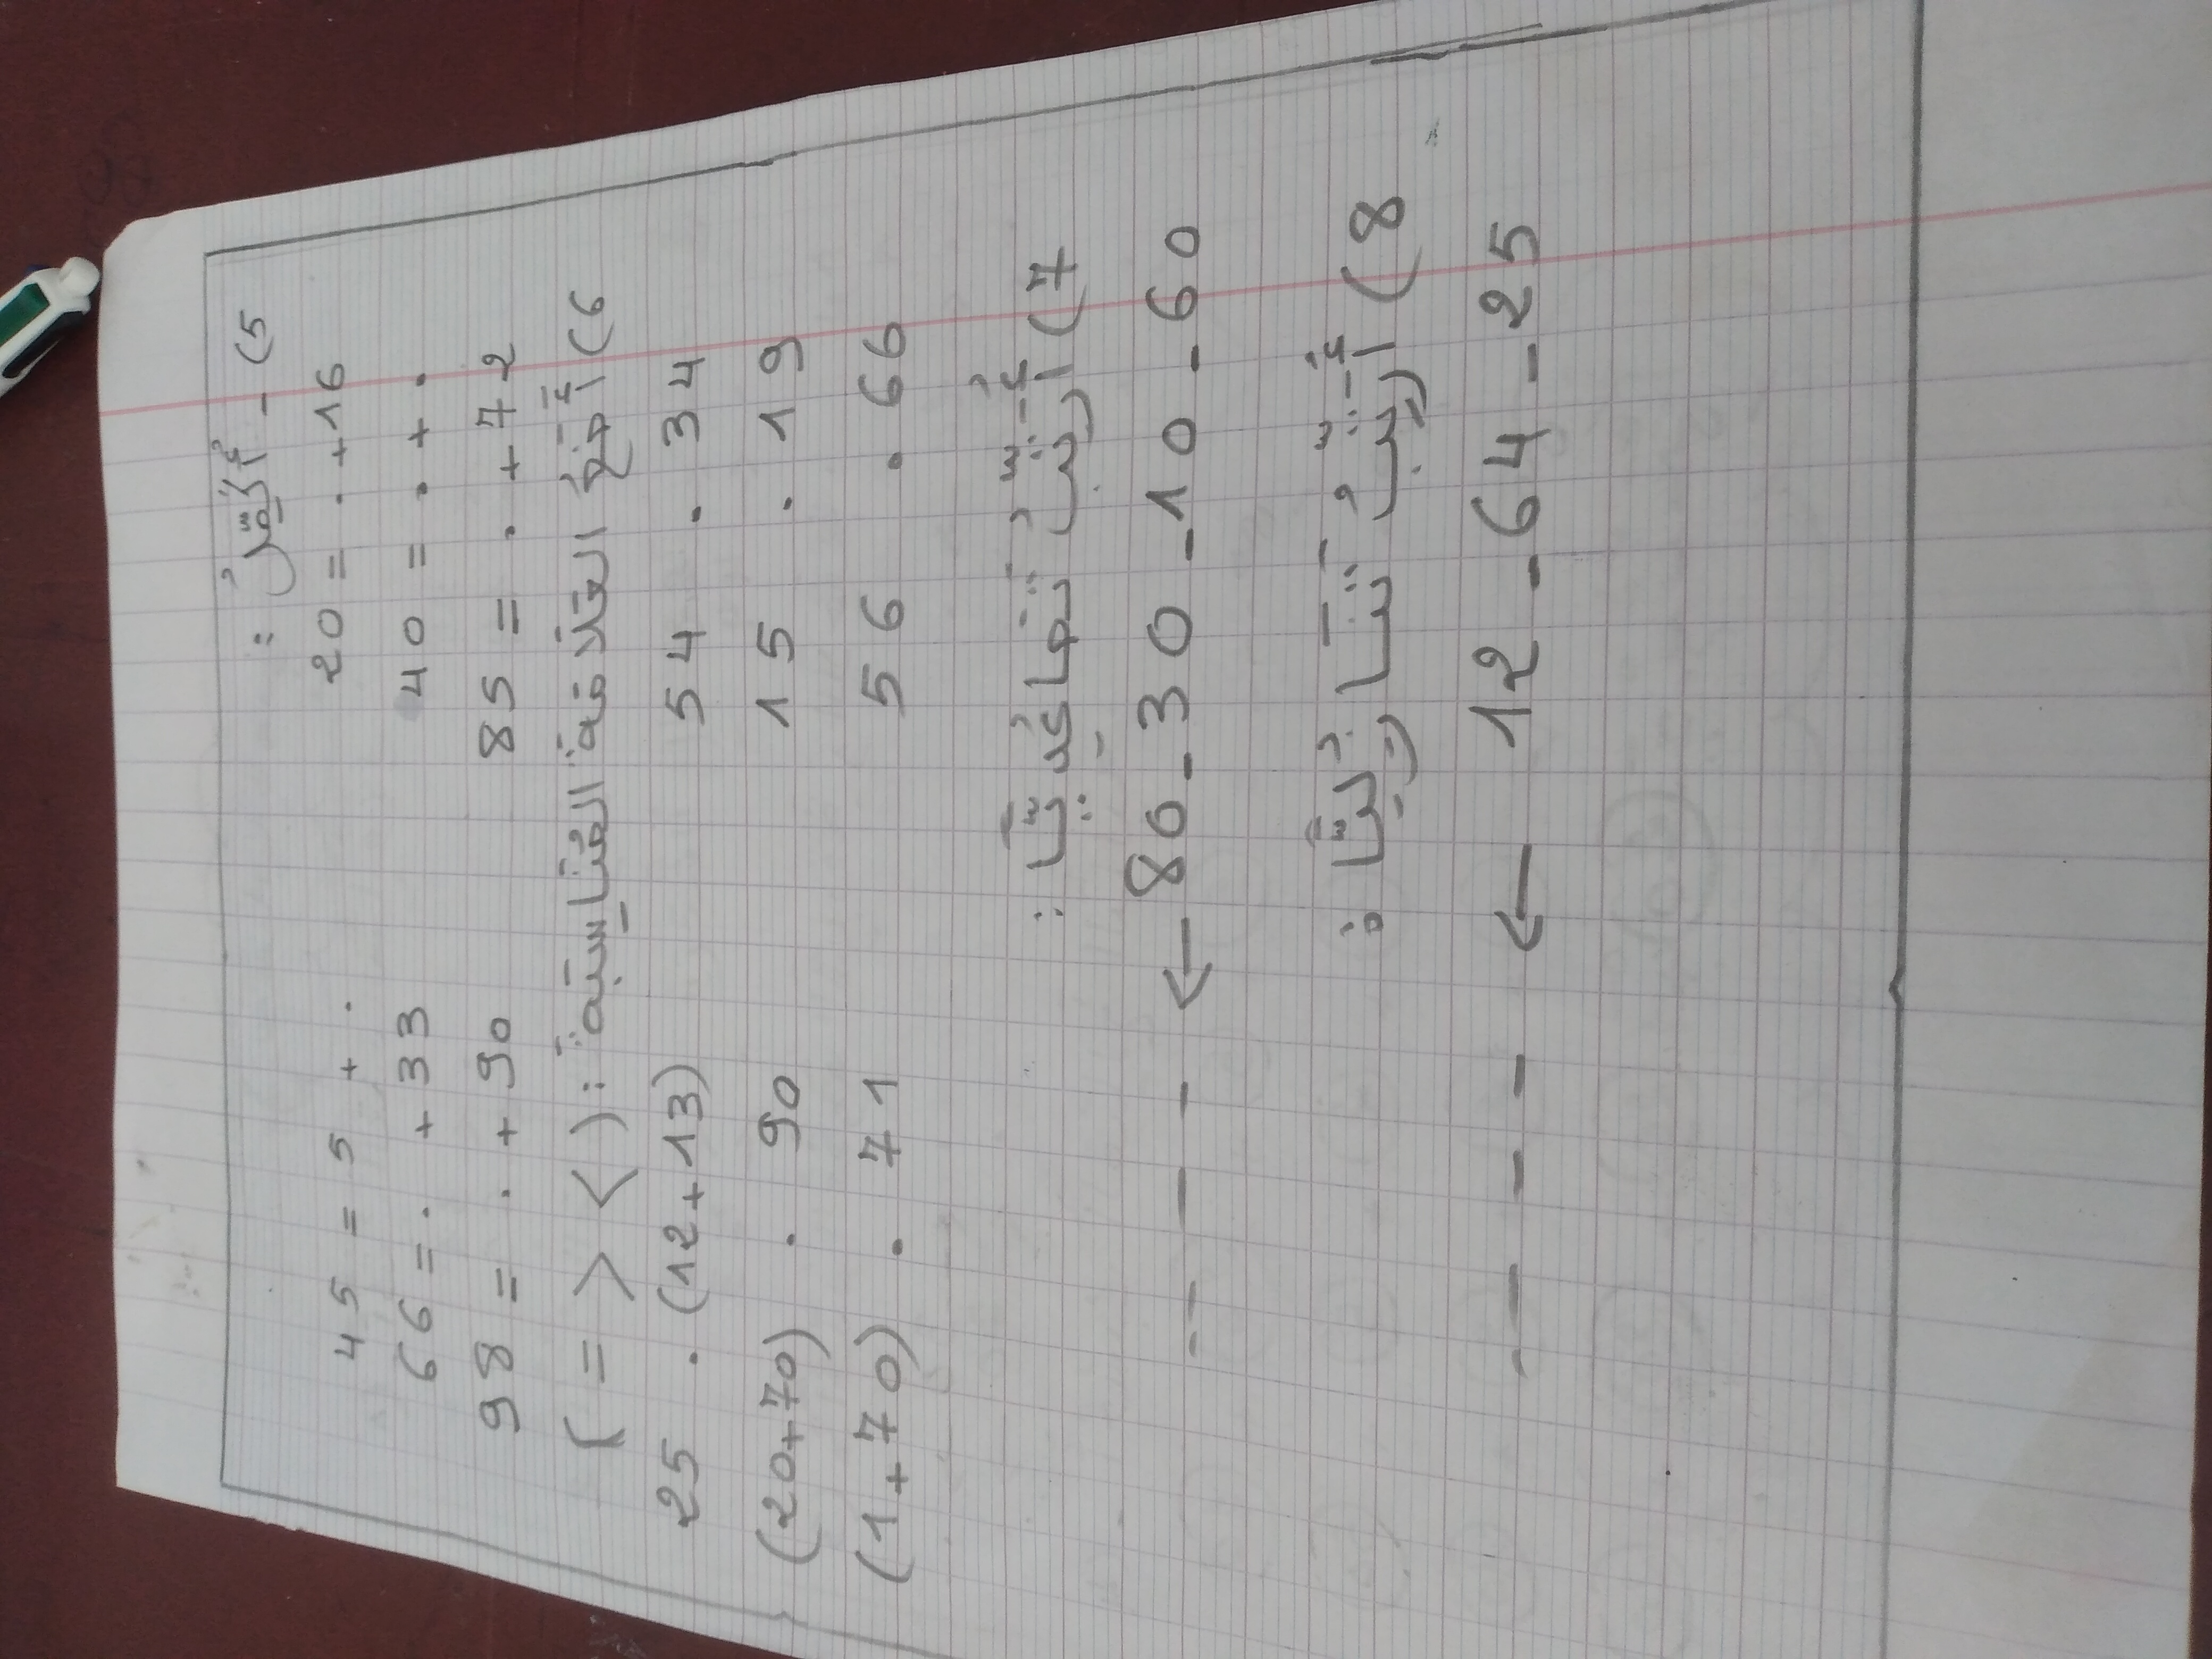 5) - أُكْمِلُ :
45 = 5 + . 20 = . +16
66 = . +33 40 = . + .
98 = . +90 85 = . +72
6) أَضَعُ العَلَامَةَ المُنَاسِبَةَ : ( = > < )
25 . (12+13) 54 . 34
(20+70) . 90 15 . 19
(1+70) . 71 56 . 66
7) أُرَتِّبُ تَصَاعُدِيًّا :
80-30-10-60 ← - - - --
8) أُرَتِّبُ تَنَازُلِيًّا :
12-64-25 ← - - - --